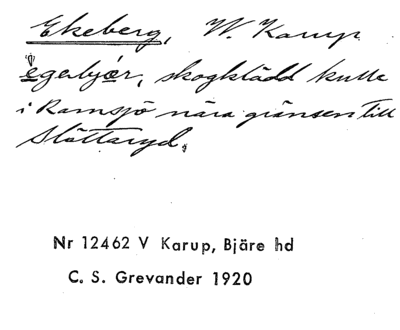 Ekeberg, W. Karup
egebjær, skogklädd kulle
i Ramsjö nära gränsen till
Slättaryd.
Nr 12462 V Karup, Bjäre hd
C. S. Grevander 1920